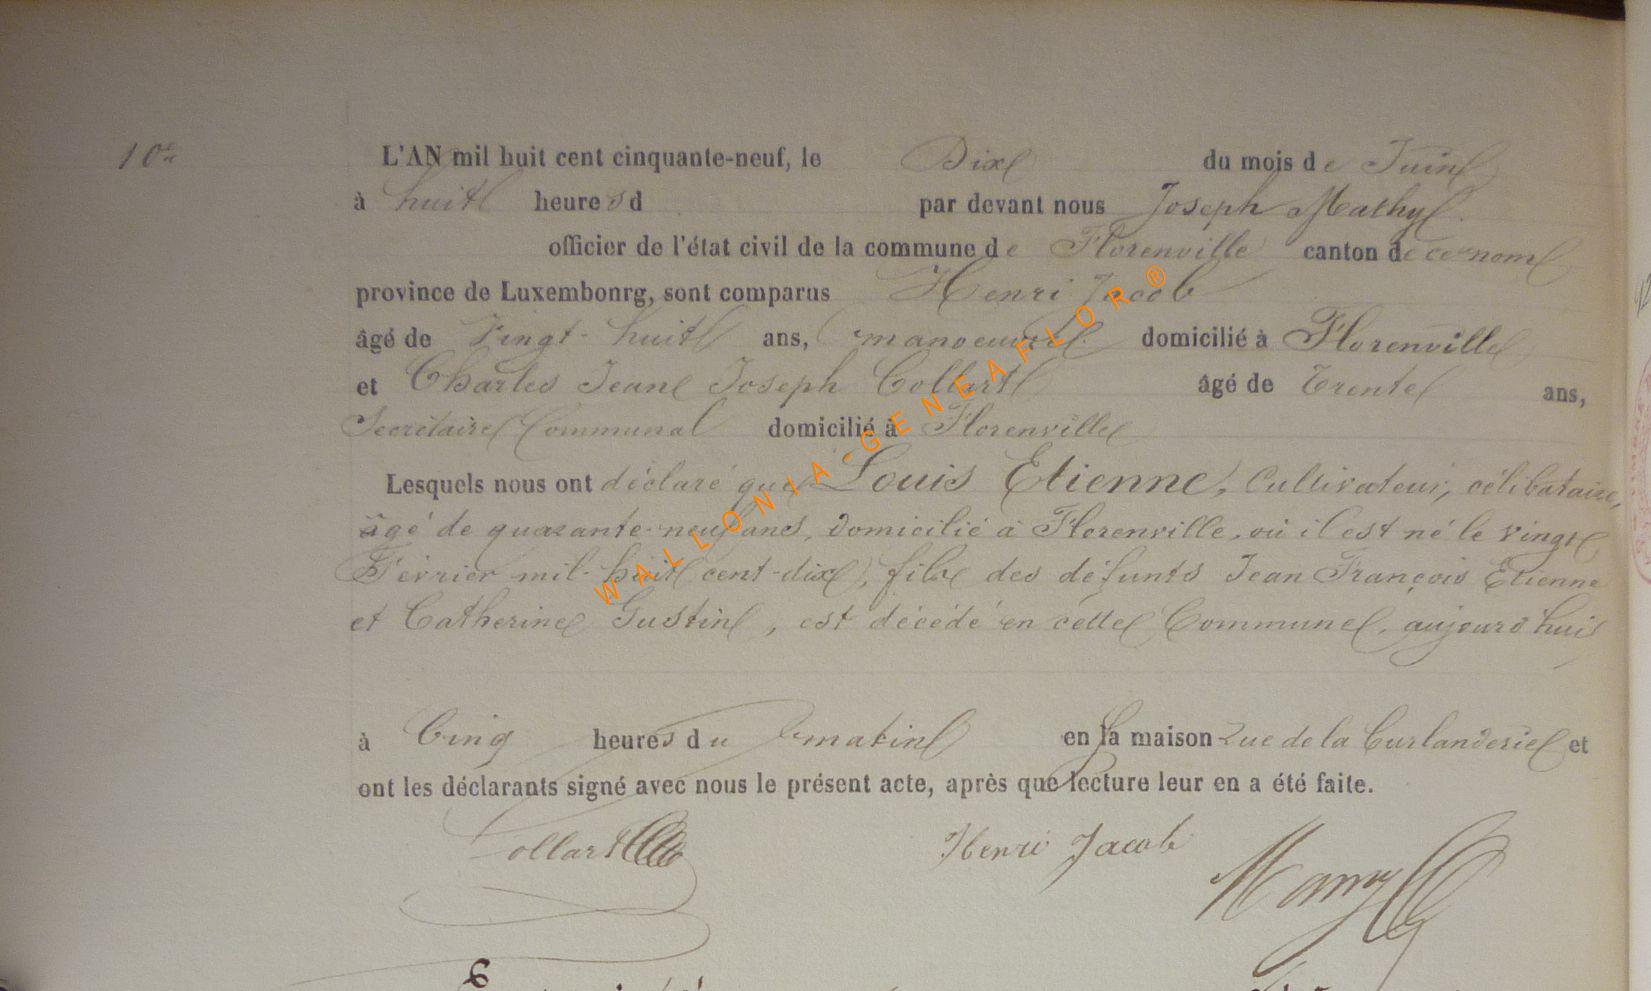 10e
L'AN mil huit cent cinquante-neuf, le Dix du mois de Juin
à huit heures d par devant nous Joseph Mathy
officier de l'état civil de la commune de Florenville canton de ce nom
province de Luxembonrg, sont comparus Henri Jacob
âgé de Vingt-huit ans, manoeuvre domicilié à Florenville
et Charles Jean Joseph Collart âgé de Trente ans,
Secrétaire Communal domicilié à Florenville
Lesquels nous ont déclaré que Louis Etienne, Cultivateur, célibataire,
âgé de quarante-neuf ans, domicilié à Florenville, où il est né le vingt
Février mil-huit cent-dix, fils des défunts Jean François Etienne
et Catherine Gustin, est décédé en cette Commune, aujourd'hui
à Cinq heures du matin en sa maison Rue de la Curlanderie et
ont les déclarants signé avec nous le présent acte, après que lecture leur en a été faite.
Collart Henri Jacob
WALLONIA-GENEAFLOR®